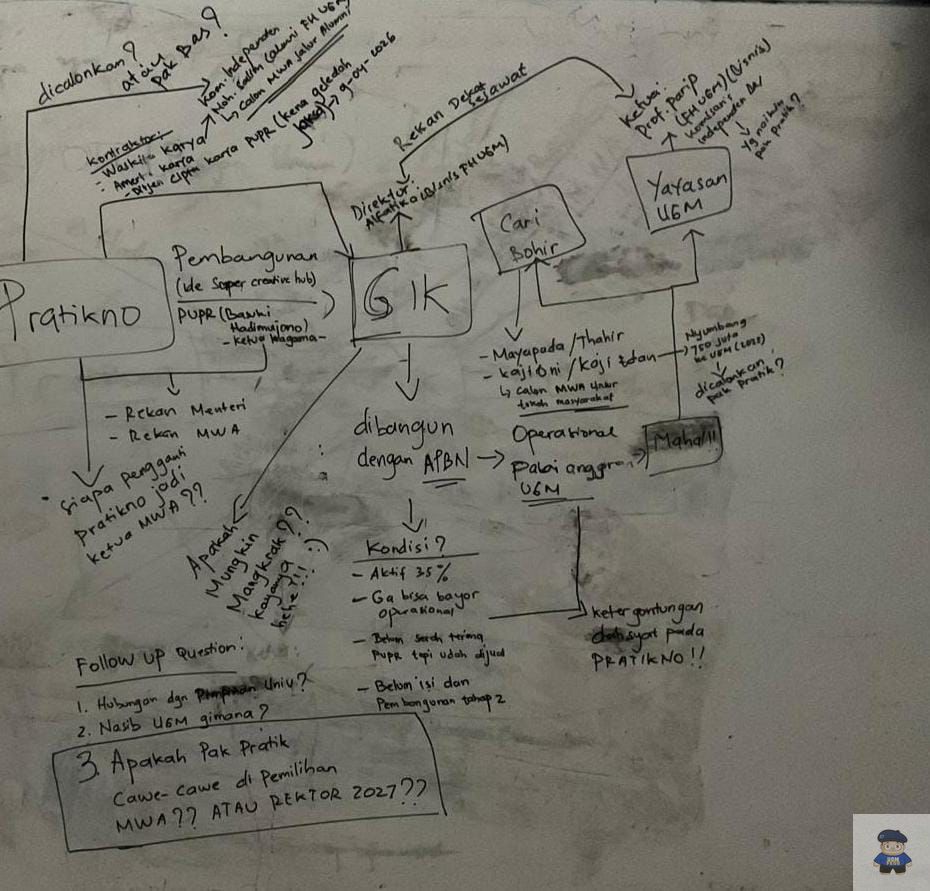 dicalonkan?
atau
pak Bas?
Kom. Independen
Moh. Fadlih (alumni FH UGM)
↳ calon MWA Jalur Alumni?
Kontraktor:
- Waskita Karya
- Ameri karya
- Ditjen Cipta karya PUPR (kena geledah
→ 9-04-2026
Rekan Dekat
sejawat
Ketua:
Prof. parip
(FH UGM) (Bisnis)
komisaris
independen
↳ yg naikin
pak pratik?
Direktur:
Alfatika (Bisnis FH UGM)
Cari
Bohir
Yayasan
UGM
Pratikno
Pembangunan
(Ide Super creative hub)
PUPR (Basuki
Hadimujono)
- Ketua Kagama -
GIK
- Rekan Menteri
- Rekan MWA
siapa pengganti
pratikno jadi
ketua MWA??
- Mayapada / Thahir
- Kaji Oni / Kaji Edan
↳ calon MWA Unsur
tokoh masyarakat
Nyumbang
750 juta
ke UGM (2022)
dicalonkan
pak pratik?
dibangun
dengan APBN
Operasional
pakai anggran
UGM
Mahal!!
Apakah
Mungkin
Mangkrak??
kayanya
hehe!!! :)
Kondisi?
- Aktif 35%
- Ga bisa bayar
operasional
- Belum serah terima
PUPR tapi udah dijual
- Belum isi dan
Pembangunan tahap 2
ketergantungan
dahsyat pada
PRATIKNO!!
Follow up Question:
1. Hubungan dgn Pimpinan Univ?
2. Nasib UGM gimana?
3. Apakah Pak Pratik
Cawe-cawe di pemilihan
MWA?? ATAU REKTOR 2027??